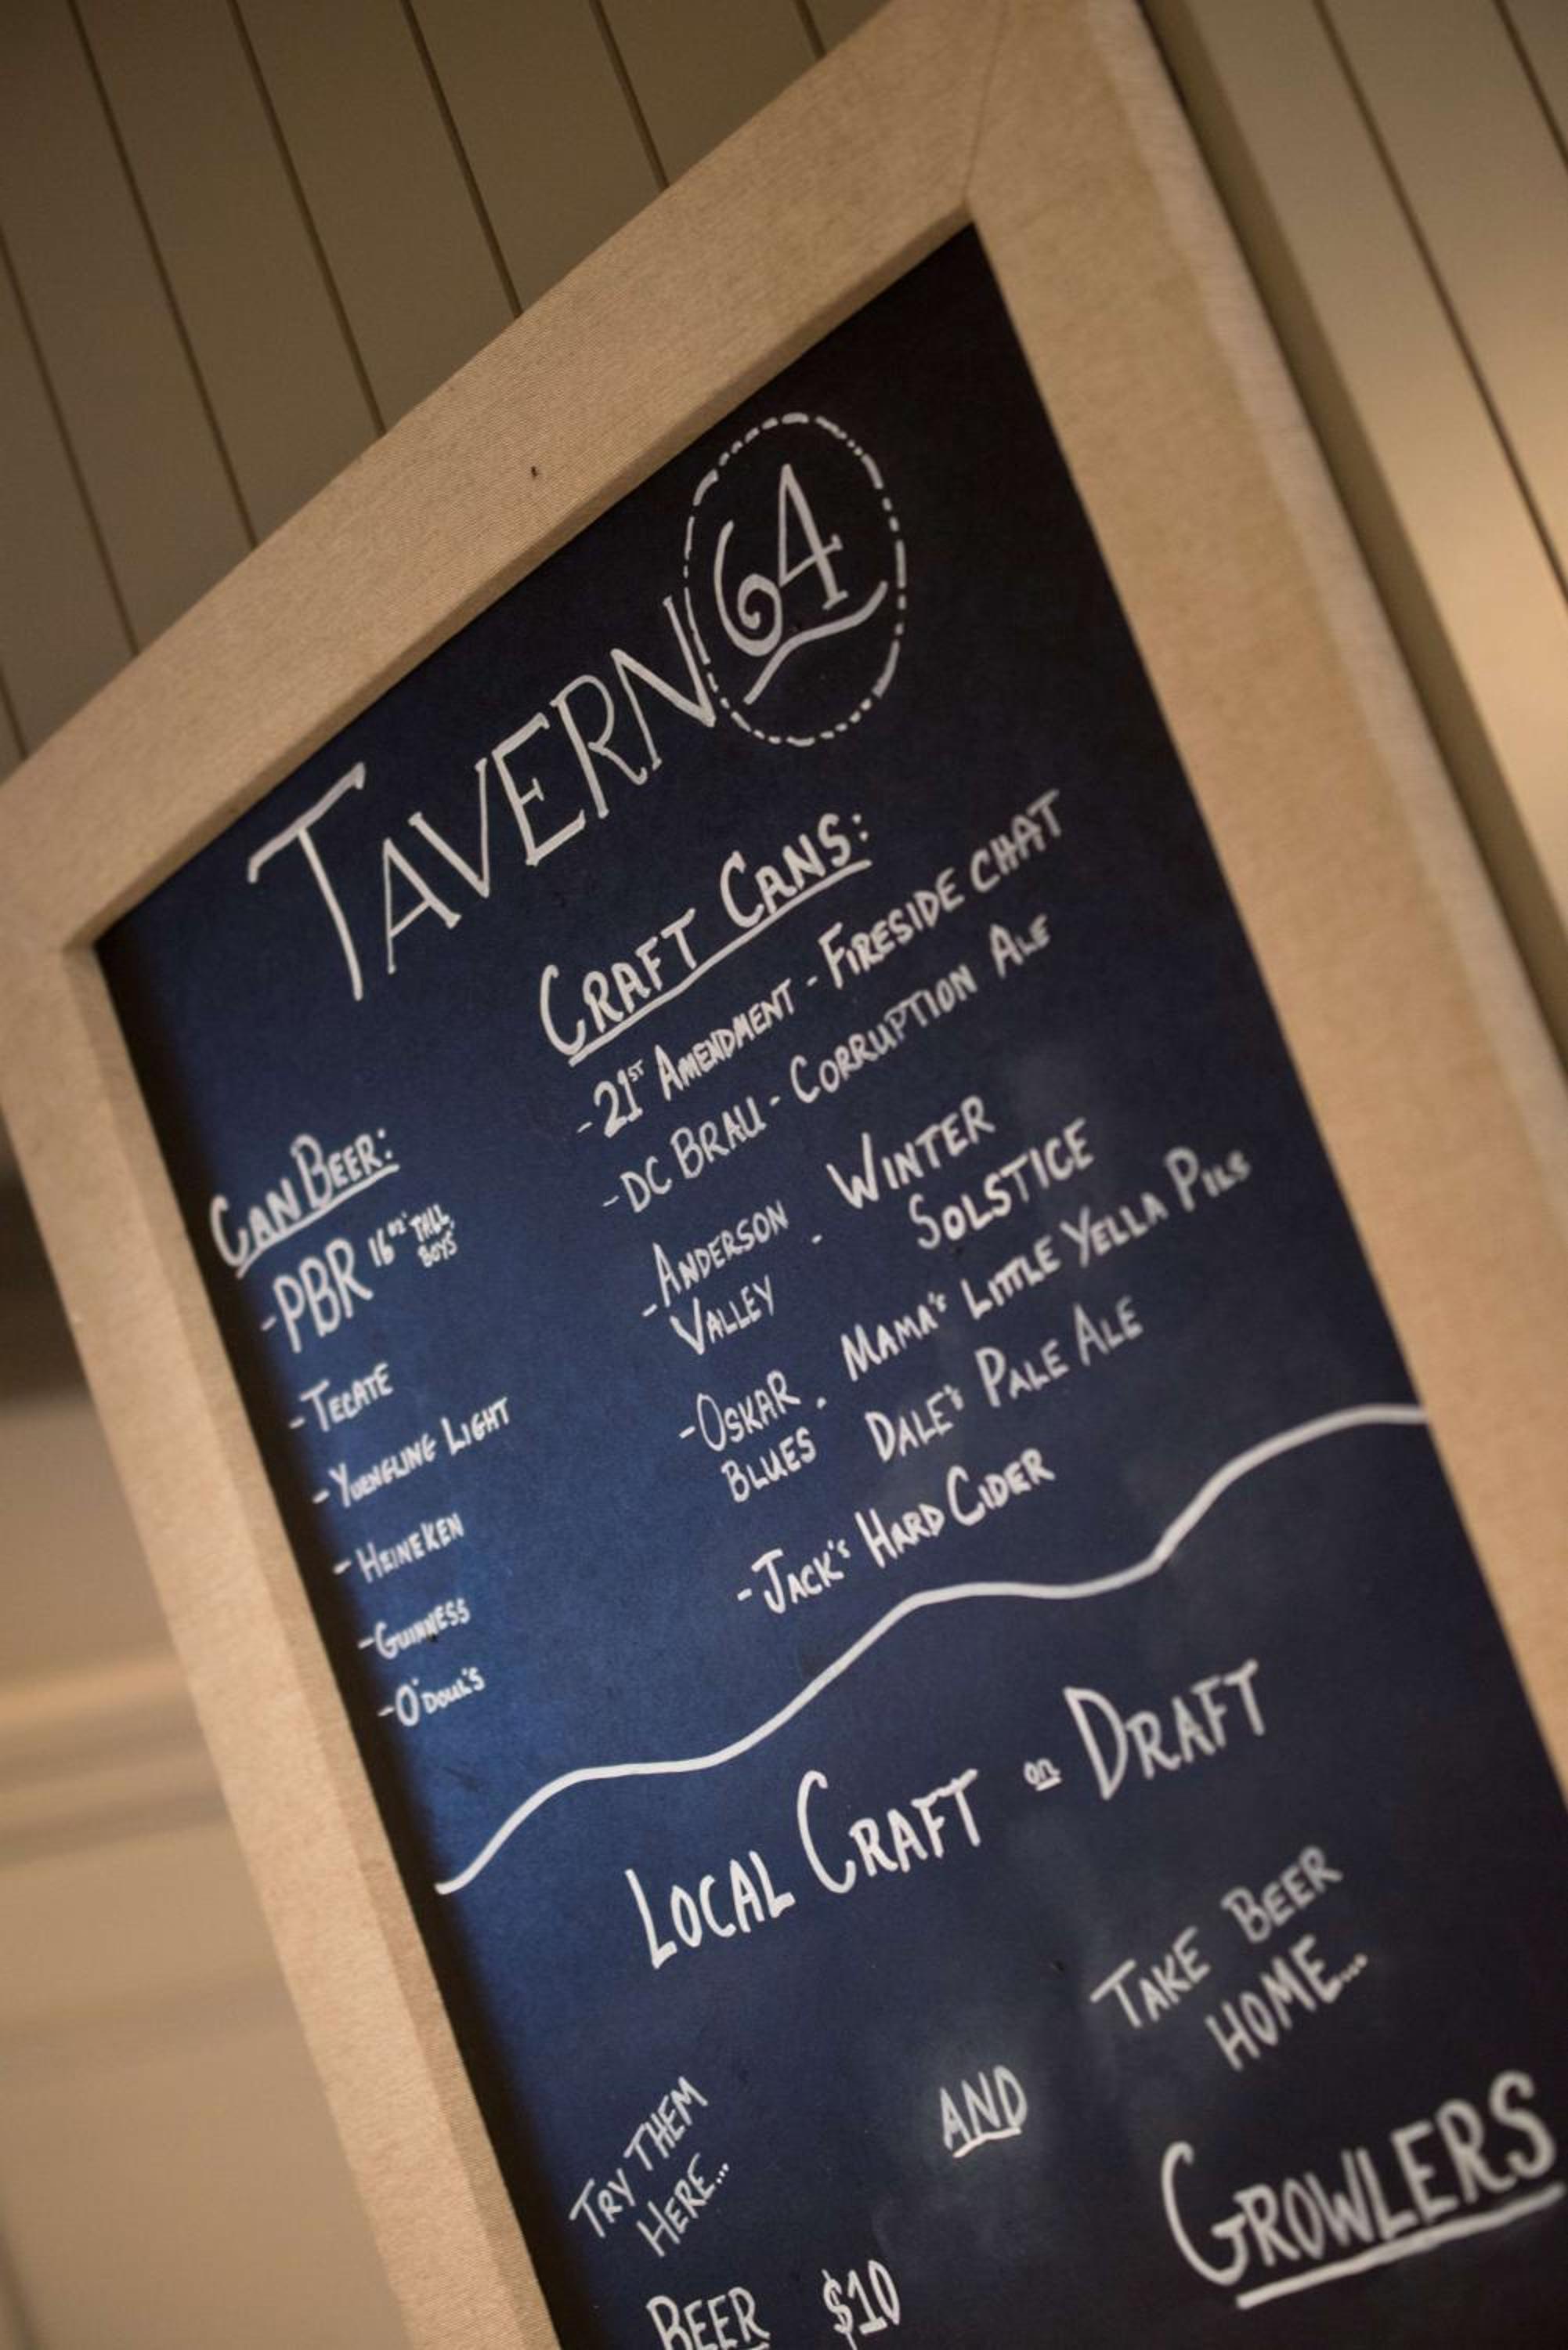 TAVERN 64
CAN BEER:
-PBR 16oz TALL
BOYS
-TECATE
-YUENGLING LIGHT
-HEINEKEN
-GUINNESS
-O'DOUL'S
CRAFT CANS:
-21ST AMENDMENT - FIRESIDE CHAT
-DC BRAU - CORRUPTION ALE
-ANDERSON - WINTER
VALLEY SOLSTICE
-OSKAR - MAMA'S LITTLE YELLA PILS
BLUES DALE'S PALE ALE
-JACK'S HARD CIDER
LOCAL CRAFT on DRAFT
TRY THEM
HERE...
AND
TAKE BEER
HOME...
BEER $10
GROWLERS